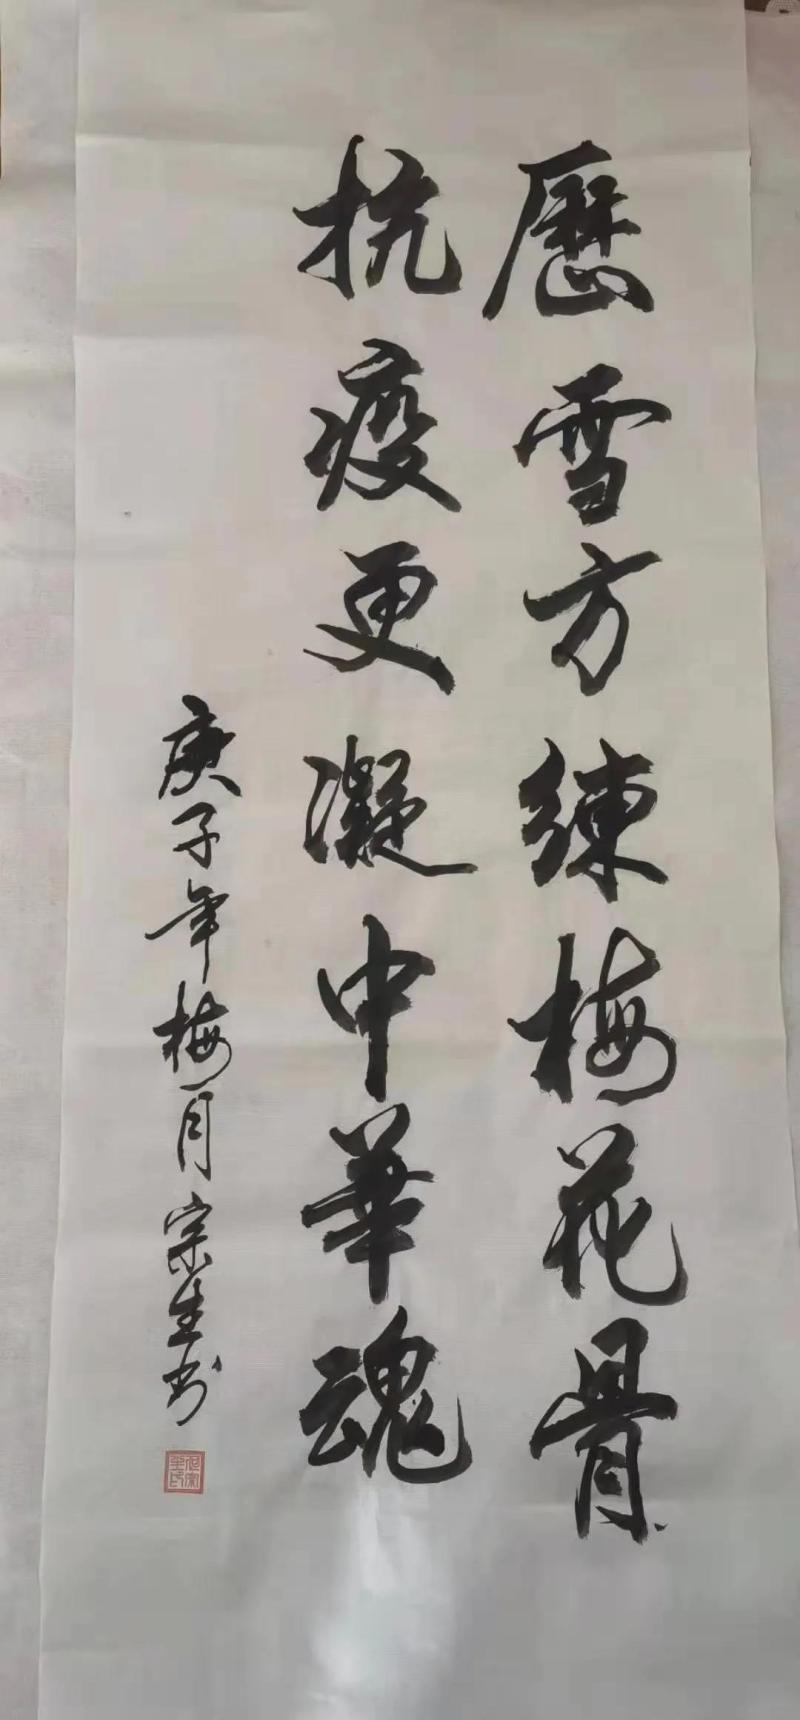 歷雪方練梅花骨
抗疫更凝中華魂
庚子年梅月宗生书